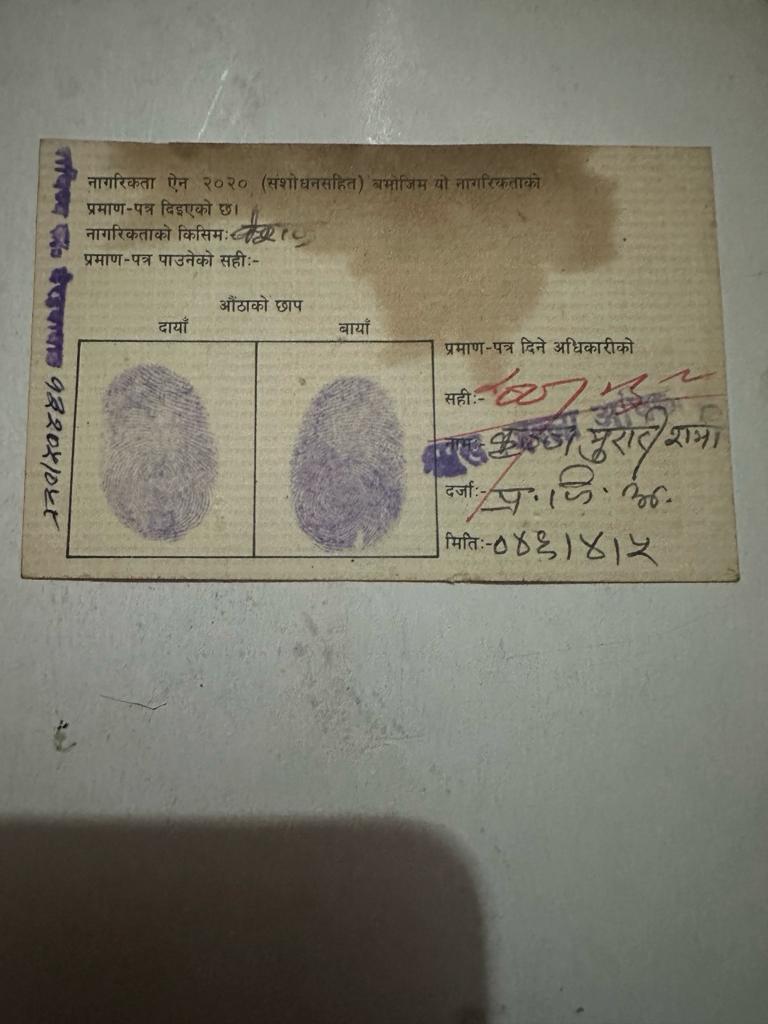 नागरिकता ऐन २०२० (संशोधनसहित) बमोजिम यो नागरिकताको
प्रमाण-पत्र दिइएको छ।
नागरिकताको किसिमः-
प्रमाण-पत्र पाउनेको सहीः-
औंठाको छाप
दायाँ
बायाँ
प्रमाण-पत्र दिने अधिकारीको
सहीः-
नामः-
दर्जाः- प्र. जि. अ.
मितिः- ०४६।४।५